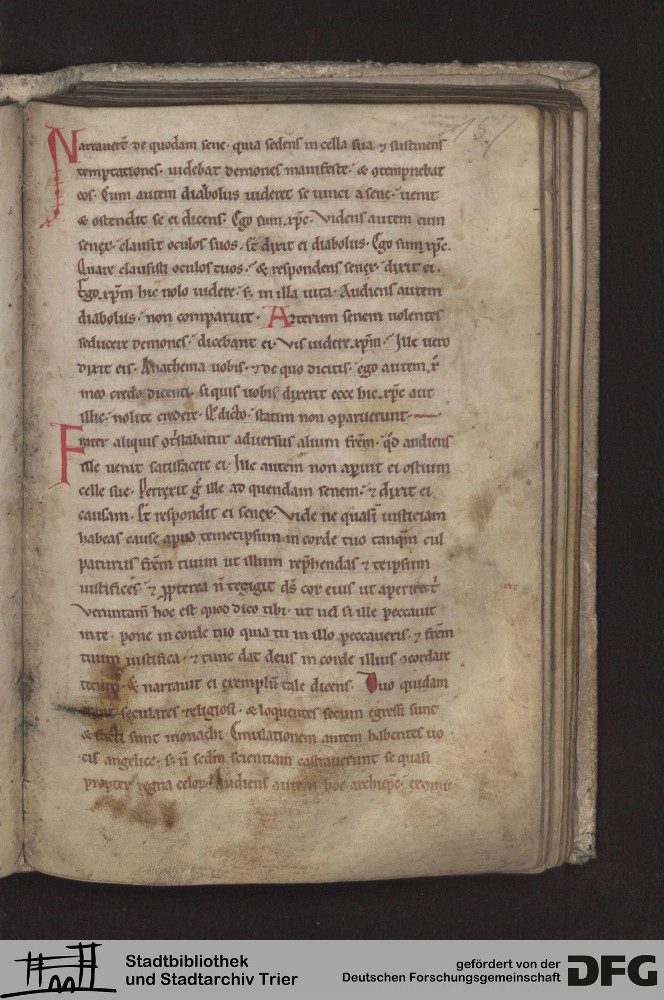 157
Narraver̄t de quodam sene. quia sedens in cella sua ⁊ sustinens
temptationes. uidebat demones manifeste. & ꝯtempnebat
eos. Cum autem diabolus uideret se uinci a sene. uenit
& ostendit se ei dicens. Ego sum xp̄c. Videns autem eum
senex. clausit oculos suos. & dixit ei diabolus. Ego sum xp̄c.
Quare clausisti oculos tuos. & respondens senex. dixit ei.
Ego xp̄m hic nolo uidere. s; in illa uita. Audiens autem
diabolus. non comparuit. Alterum senem uolentes
seducere demones. dicebant ei. Vis uidere xp̄m. Ille uero
dixit eis. Anathema uobis. ⁊ de quo dicitis. ego autem x̄
meo credo dicenti. si quis uobis dixerit ecce hic xp̄c aut
illic. nolite credere. Q° dicto. statim non ꝯparuerunt.
Frater aliquis ꝯt'stabatur aduersus alium fr̄em. q°d audiens
ille uenit satisfacere ei. Ille autem non aꝑuit ei ostium
celle sue. Perrexit g° ille ad quendam senem. ⁊ dixit ei
causam. Et respondit ei senex. Vide ne quasi iusticiam
habeas cause apud temetipsum in corde tuo tanqm̄ cul
paturus fr̄em tuum ut illum rep̄hendas ⁊ teipsum
iustifices. ⁊ ꝓpterea n̄ tegigit d̄s cor eius ut aperiret t'
Veruntam̄ hoc est quod dico tibi. ut uel si ille peccauit
in te. pone in corde tuo quia tu in illo peccaueris. ⁊ fr̄em
tuum iustifica. ⁊ tunc dat deus in corde illius ꝯcordare
tecum. & narrauit ei exemplū tale dicens. Duo quidam
erant seculares religiosi. & loquentes secum egressi sunt
& facti sunt monachi. Emulationem autem habentes uo
cis angelice. s; n̄ sedm̄ scientiam castrauerunt se quasi
propter regna celor̄. Audiens autem hoc archiep̄c. excomi
Stadtbibliothek
und Stadtarchiv Trier
gefördert von der
Deutschen Forschungsgemeinschaft
DFG